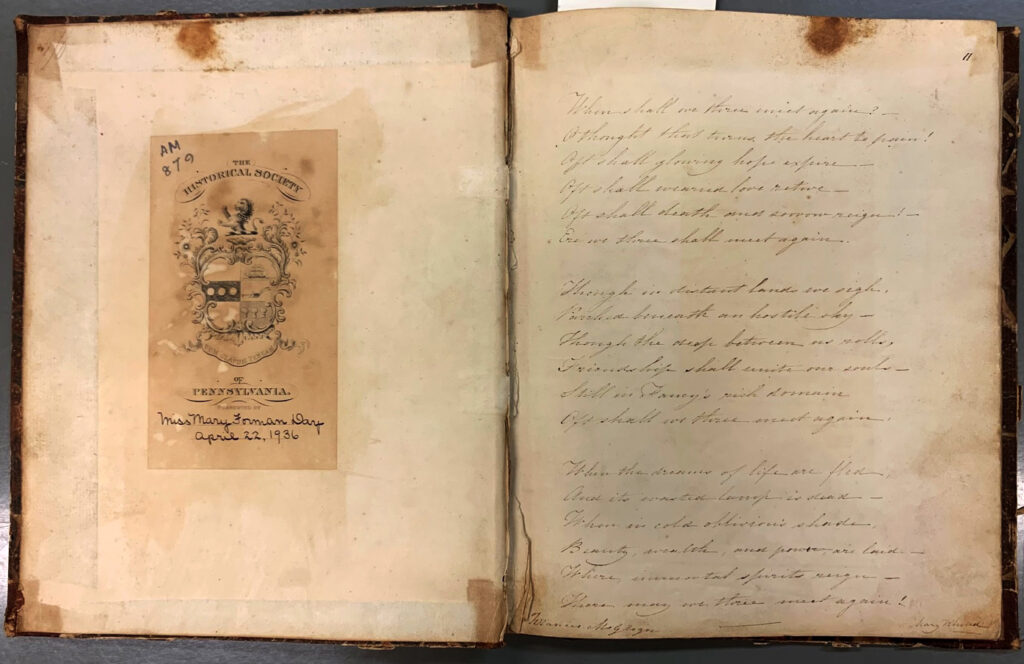 AM
879
THE
HISTORICAL SOCIETY
OF
PENNSYLVANIA.
PRESENTED BY
Miss Mary Forman Day
April 22, 1936
11
When shall we three meet again?
O thought that turns the heart to pain!
Oft shall glowing hope expire —
Oft shall wearied love retire —
Oft shall death and sorrow reign! —
Ere we three shall meet again.
Though in distant lands we sigh,
Parched beneath an hostile sky —
Though the deep between us rolls,
Friendship shall unite our souls —
Still in Fancy's rich domain
Oft shall we three meet again.
When the dreams of life are fled,
And its wasted lamp is dead —
When in cold oblivious shade,
Beauty, wealth, and power are laid —
Where, immortal spirits reign —
There may we three meet again!
Mary